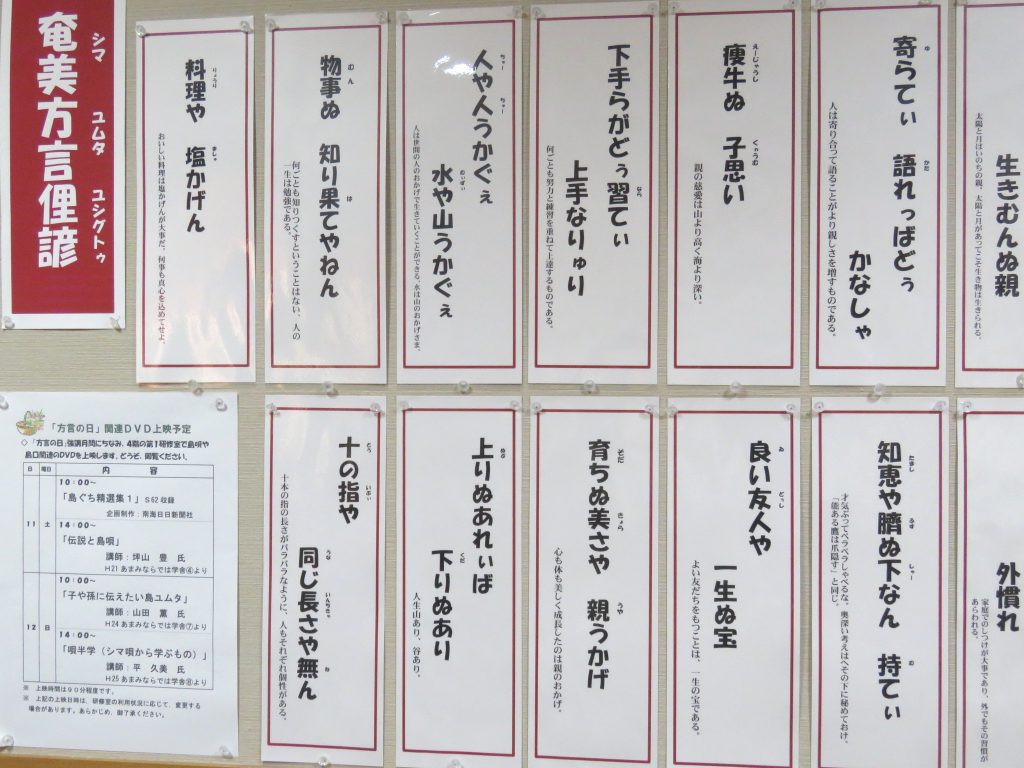 奄美方言俚諺
シマ ユムタ ユシグトゥ
生きむんぬ親
太陽と月はいのちの親、太陽と月があってこそ生き物は生きられる。
寄らてぃ 語れっばどぅ
かなしゃ
人は寄り合って語ることがより親しさを増すものである。
痩牛ぬ 子思い
親の慈愛は山より高く海より深い。
下手らがどぅ習てぃ
上手なりゅり
何ごとも努力と練習を重ねて上達するものである。
人や人うかぐぇ
水や山うかぐぇ
人は世間の人のおかげで生きていくことができる、水は山のおかげさま。
物事ぬ 知り果てやねん
何ごとも知りつくすということはない、人の
一生は勉強である。
料理や 塩かげん
おいしい料理は塩かげんが大事だ、何事も真心を込めてせよ。
外慣れ
家庭でのしつけが大事であり、外でもその習慣が
あらわれる。
知恵や臍ぬ下なん 持てぃ
才気ぶってペラペラしゃべるな。奥深い考えはへその下に秘めておけ。
「能ある鷹は爪隠す」と同じ。
良い友人や
一生ぬ宝
よい友だちをもつことは、一生の宝である。
育ちぬ美さや 親うかげ
心も体も美しく成長したのは親のおかげ。
上りぬあれぃば
下りぬあり
人生山あり、谷あり。
十の指や
同じ長さや無ん
十本の指の長さがバラバラなように、人もそれぞれ個性がある。
「方言の日」関連DVD上映予定
◇「方言の日」強調月間にちなみ、4階の第1研修室で島唄や
島口関連のDVDを上映します。どうぞ、御覧ください。
日 曜日 内 容
11 土
10:00~
「島ぐち精選集1」S62収録
企画制作:南海日日新聞社
14:00~
「伝説と島唄」
講師:坪山 豊 氏
H21あまみならでは学舎④より
12 日
10:00~
「子や孫に伝えたい島ユムタ」
講師:山田 薫 氏
H24あまみならでは学舎⑦より
14:00~
「唄半学(シマ唄から学ぶもの)」
講師:平 久美 氏
H25あまみならでは学舎⑧より
※ 上映時間は90分程度です。
※ 上記の上映日時は、研修室の利用状況に応じて、変更する
場合があります。あらかじめ、御了承ください。